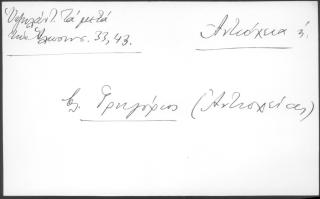 Ὑψηλάντ. Τά μετά
τήν Ἅλωσιν. 33, 43.
Ἀντιόχεια
βλ. Γρηγόριος (Ἀντιοχείας)